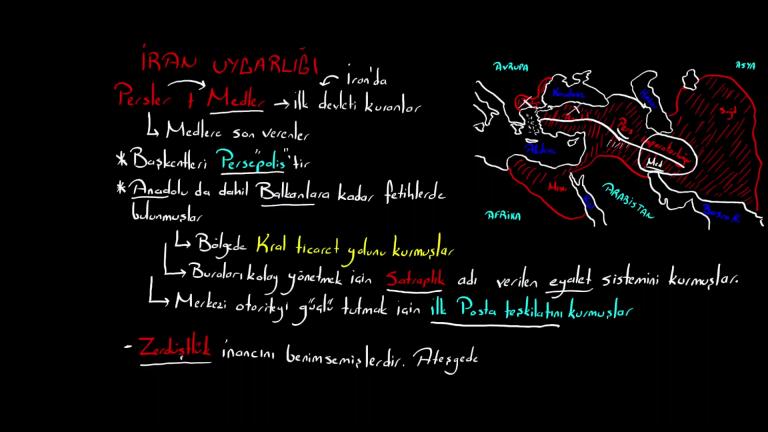 İRAN UYGARLIĞI
İran'da
Persler + Medler → ilk devleti kuranlar
↳ Medlere son verenler
* Başkentleri "Persepolis" tir
* Anadolu da dahil Balkanlara kadar fetihlerde
bulunmuşlar
↳ Bölgede Kral ticaret yolunu kurmuşlar
↳ Buraları kolay yönetmek için Satraplık adı verilen eyalet sistemini kurmuşlar.
↳ Merkezi otoriteyi güçlü tutmak için ilk Posta teşkilatını kurmuşlar
- Zerdüştlük inancını benimsemişlerdir. Ateşgede
AVRUPA
ASYA
Pers
Med
Mısır
ARABİSTAN
AFRİKA